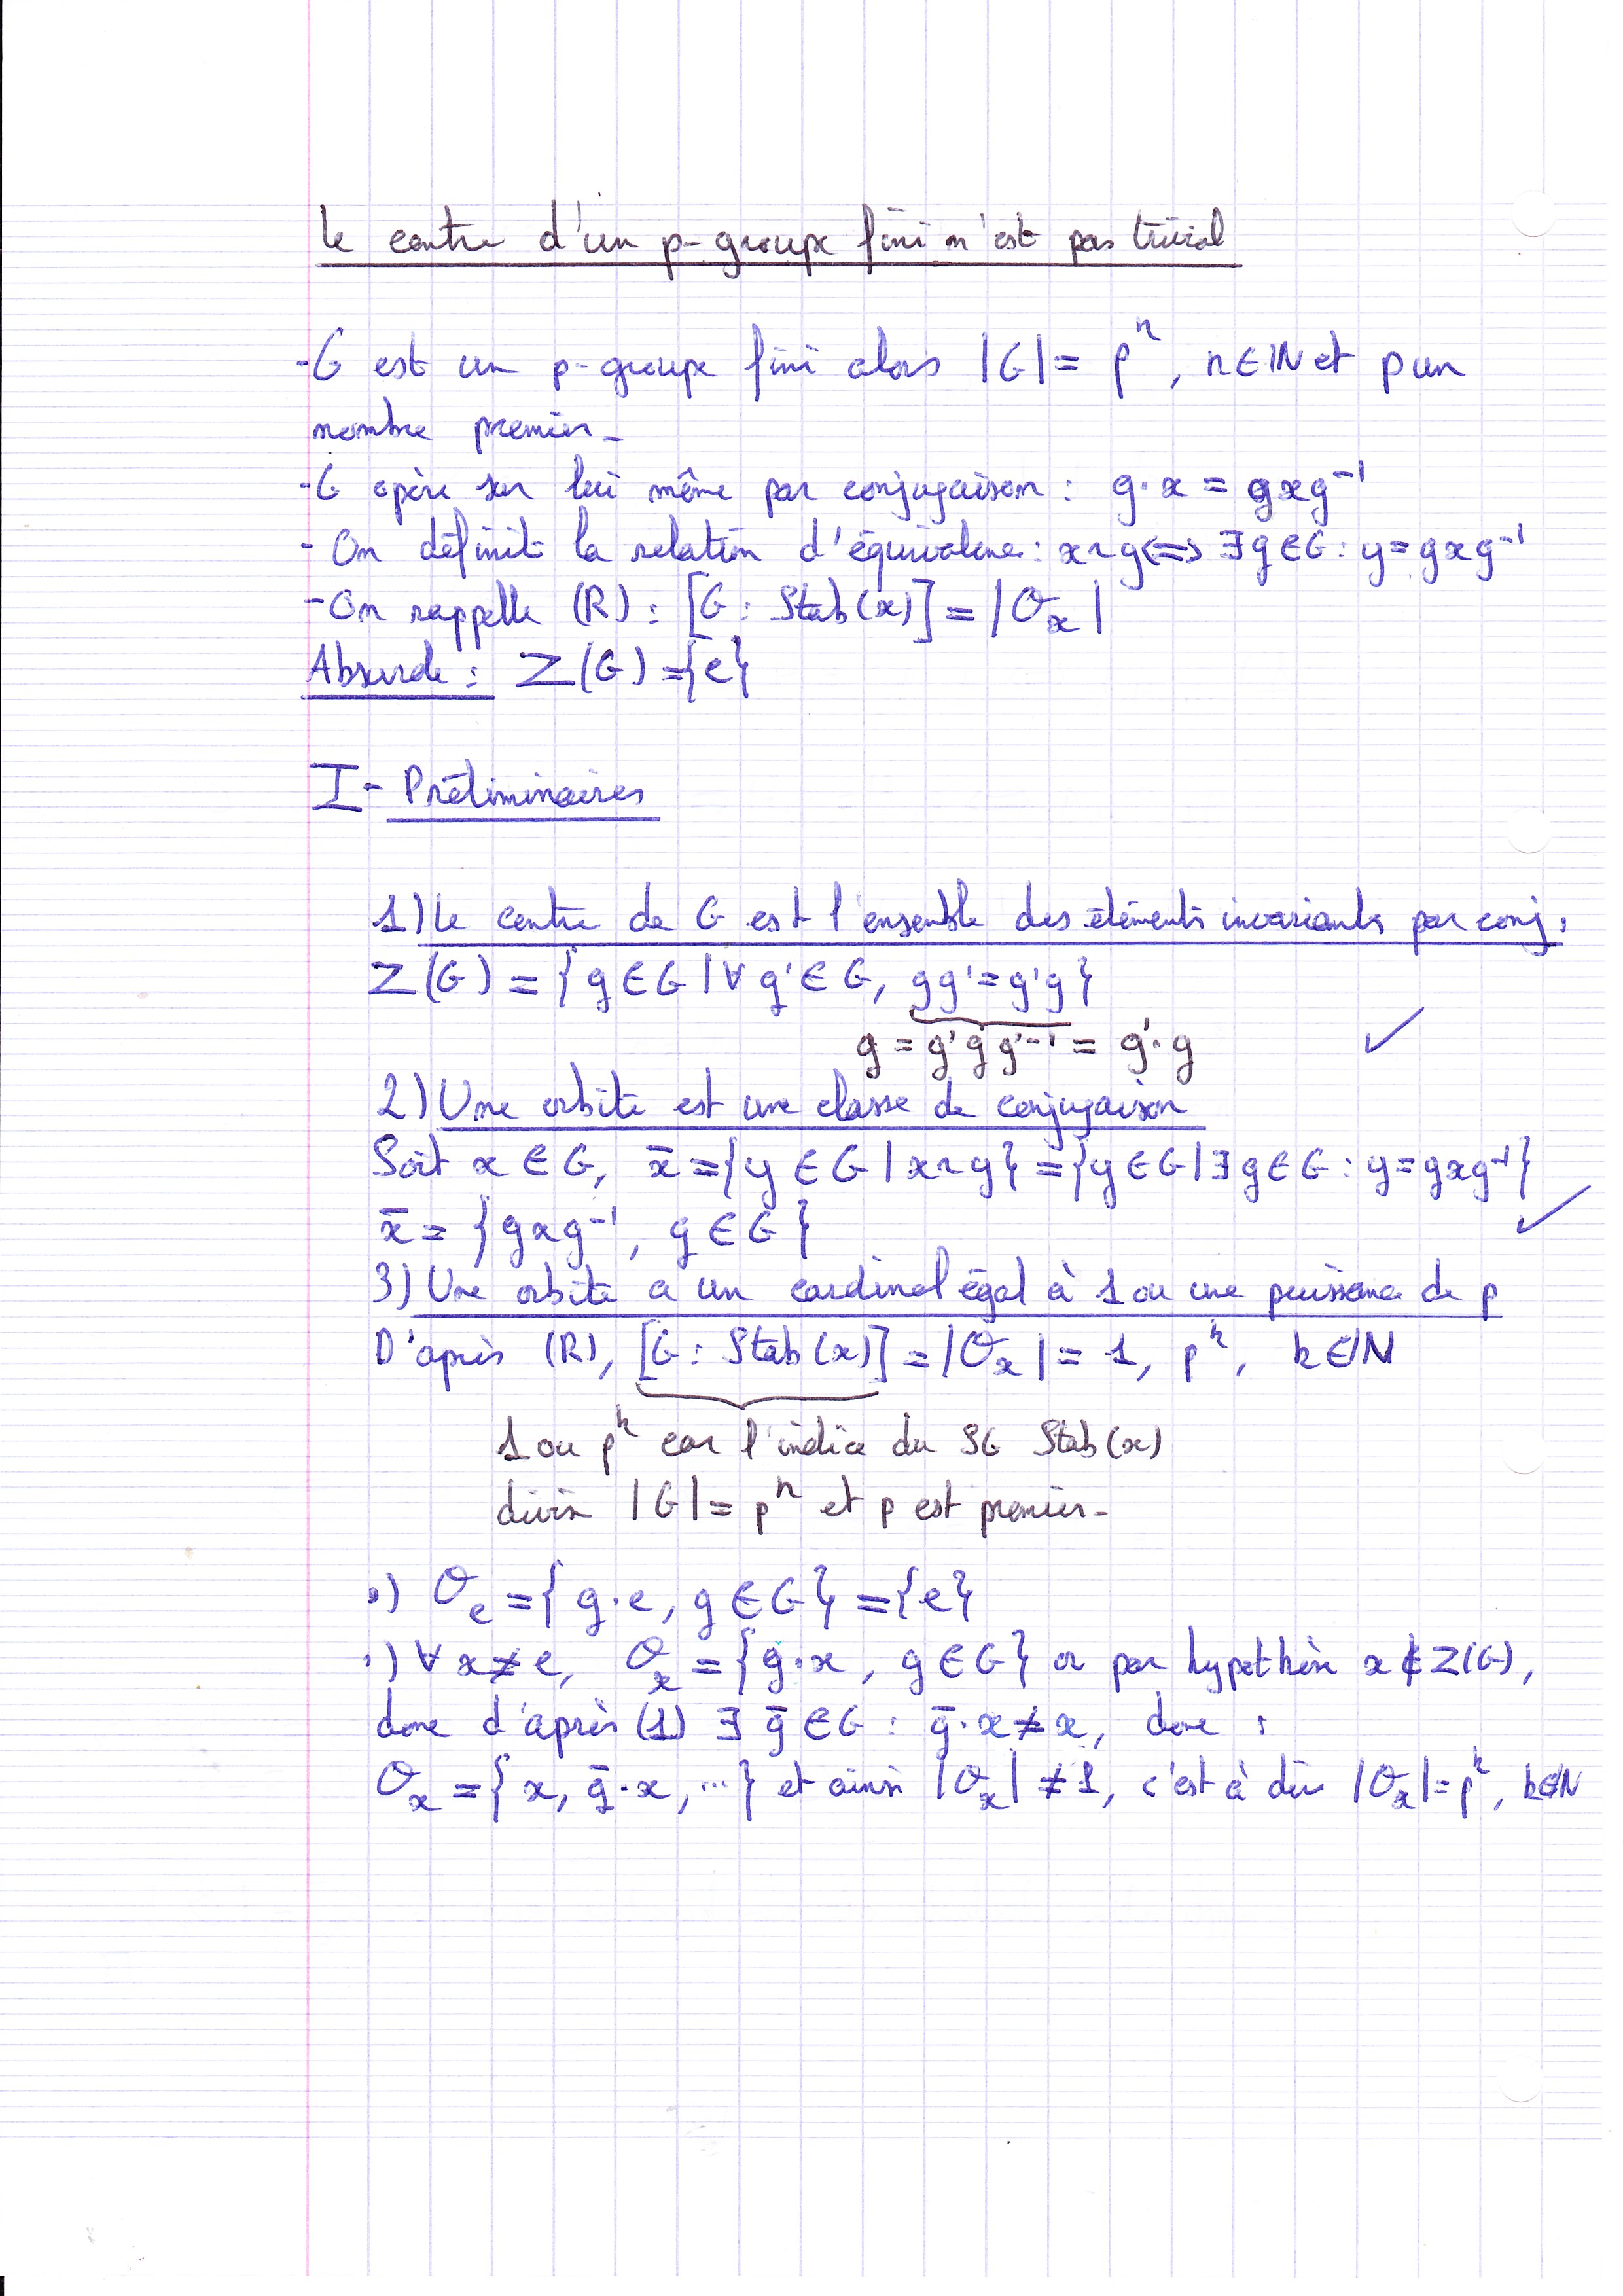 Le centre d'un p-groupe fini n'est pas trivial
- G est un p-groupe fini alors |G| = pⁿ, n ∈ ℕ et p un
nombre premier _
- G opère sur lui même par conjugaison : g·x = gxg⁻¹
- On définit la relation d'équivalence : x ~ y <=> ∃ g ∈ G : y = gxg⁻¹
- On rappelle (R) : [G : Stab(x)] = |Oₓ|
Absurde : Z(G) = {e}
I - Préliminaires
1) Le centre de G est l'ensemble des éléments invariants par conj.
Z(G) = {g ∈ G | ∀ g' ∈ G, gg' = g'g}
g = g'gg'⁻¹ = g'·g ✓
2) Une orbite est une classe de conjugaison
Soit x ∈ G, x̄ = {y ∈ G | x ~ y} = {y ∈ G | ∃ g ∈ G : y = gxg⁻¹}
x̄ = {gxg⁻¹, g ∈ G} ✓
3) Une orbite a un cardinal égal à 1 ou une puissance de p
D'après (R), [G : Stab(x)] = |Oₓ| = 1, pᵏ, k ∈ ℕ
1 ou pᵏ car l'indice du SG Stab(x)
divise |G| = pⁿ et p est premier _
·) Oₑ = {g·e, g ∈ G} = {e}
·) ∀ x ≠ e, Oₓ = {g·x, g ∈ G} or par hypothèse x ∉ Z(G),
donc d'après (1) ∃ ḡ ∈ G : ḡ·x ≠ x, donc :
Oₓ = {x, ḡ·x, ...} et ainsi |Oₓ| ≠ 1, c'est à dire |Oₓ| = pᵏ, k ∈ ℕ